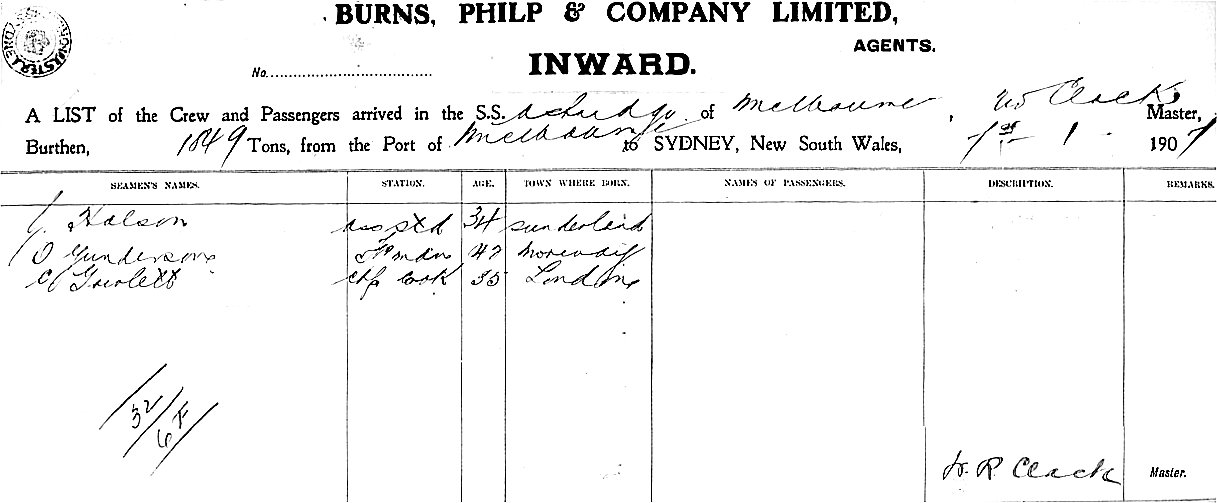 BURNS, PHILP & COMPANY LIMITED,
AGENTS.
INWARD.
No.
A LIST of the Crew and Passengers arrived in the S.S. of Melbourne, W Clack Master,
Burthen, 1849 Tons, from the Port of Melbourne to SYDNEY, New South Wales, 1st 1 1907
SEAMEN'S NAMES. STATION. AGE. TOWN WHERE BORN. NAMES OF PASSENGERS. DESCRIPTION. REMARKS.
Halson std 34 Sunderland
O Gunderson 47 Norway
C chf Cook 35 London
32
6 F
W. R. Clack Master.